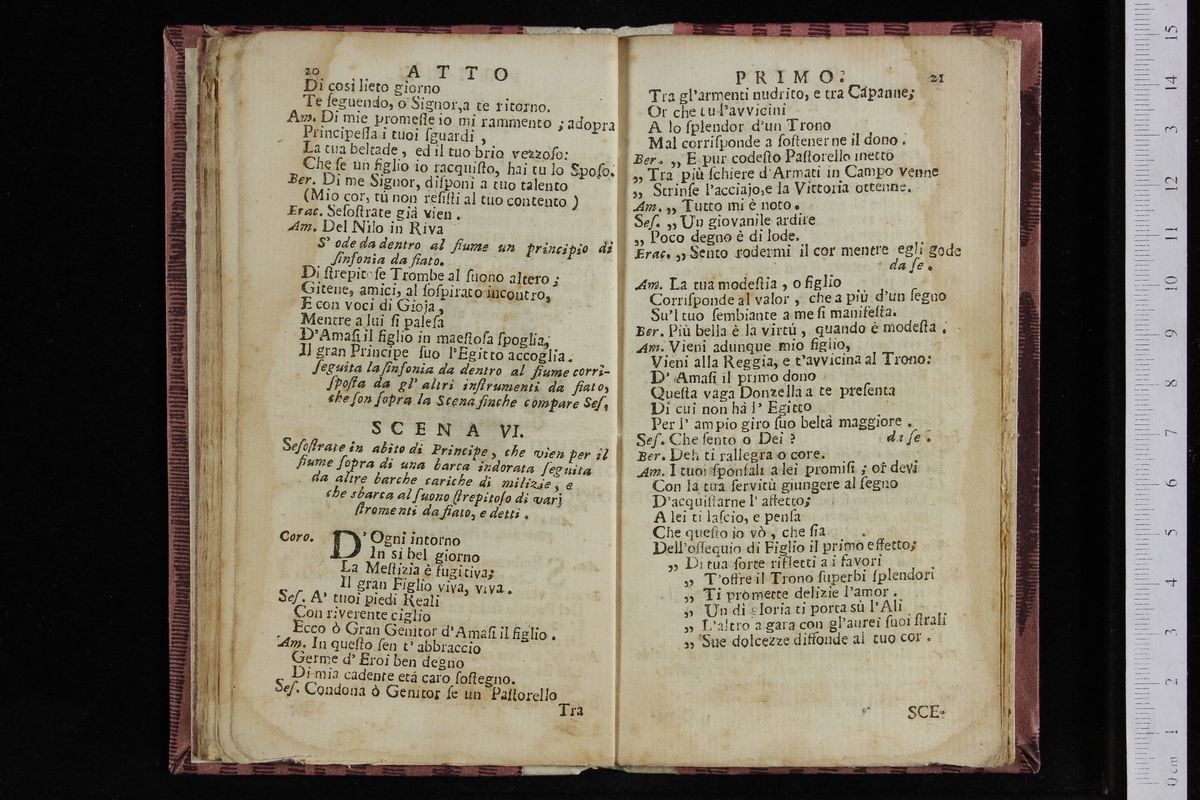 20 ATTO
Di così lieto giorno
Te ſeguendo, o Signor,a te ritorno.
Am. Di mie promeſſe io mi rammento ; adopra
Principeſſa i tuoi ſguardi ,
La tua beltade , ed il tuo brio vezzoſo:
Che ſe un figlio io racquiſto, hai tu lo Spoſo.
Ber. Di me Signor, diſponi a tuo talento
(Mio cor, tù non reſiſti al tuo contento )
Erac. Seſoſtrate già vien .
Am. Del Nilo in Riva
S' ode da dentro al fiume un principio di
ſinfonia da fiato.
Di ſtrepitoſe Trombe al ſuono altero ;
Gitene, amici, al ſoſpirato incontro,
E con voci di Gioja ,
Mentre a lui ſi paleſa
D'Amaſi il figlio in maeſtoſa ſpoglia,
Il gran Principe ſuo l'Egitto accoglia .
ſeguita la ſinfonia da dentro al fiume corri-
ſpoſta da gl' altri inſtrumenti da fiato,
che ſon ſopra la Scena finche compare Seſ,
SCENA VI.
Seſoſtrate in abito di Principe , che vien per il
fiume ſopra di una barca indorata ſeguita
da altre barche cariche di milizie , e
che sbarca al ſuono ſtrepitoſo di varj
ſtromenti da fiato, e detti .
Coro. D'Ogni intorno
In sì bel giorno
La Meſtizia è fugitiva;
Il gran Figlio viva, viva .
Seſ. A' tuoi piedi Reali
Con riverente ciglio
Ecco ò Gran Genitor d'Amaſi il figlio .
Am. In queſto ſen t' abbraccio
Germe d' Eroi ben degno
Di mia cadente età caro ſoſtegno.
Seſ. Condona ò Genitor ſe un Paſtorello
Tra
PRIMO. 21
Tra gl'armenti nudrito, e tra Capanne;
Or che tu l'avvicini
A lo ſplendor d'un Trono
Mal corriſponde a ſoſtenerne il dono .
Ber. „ E pur codeſto Paſtorello inetto
„ Tra più ſchiere d'Armati in Campo venne
„ Strinſe l'acciajo,e la Vittoria ottenne.
Am. „ Tutto mi è noto .
Seſ. „ Un giovanile ardire
„ Poco degno è di lode.
Erac. „ Sento rodermi il cor mentre egli gode
da ſe .
Am. La tua modeſtia , o figlio
Corriſponde al valor , che a più d'un ſegno
Su'l tuo ſembiante a me ſi manifeſta.
Ber. Più bella è la virtù , quando è modeſta .
Am. Vieni adunque mio figlio,
Vieni alla Reggia, e t'avvicina al Trono:
D' Amaſi il primo dono
Queſta vaga Donzella a te preſenta
Di cui non hà l' Egitto
Per l' ampio giro ſuo beltà maggiore .
Seſ. Che ſento o Dei ? da ſe .
Ber. Deh ti rallegra o core.
Am. I tuoi ſponſali a lei promiſi ; or devi
Con la tua ſervitù giungere al ſegno
D'acquiſtarne l' affetto;
A lei ti laſcio, e penſa
Che queſto io vò , che ſia
Dell'oſſequio di Figlio il primo effetto;
„ Di tua ſorte rifletti a i favori
„ T'offre il Trono ſuperbi ſplendori
„ Ti promette delizie l'amor .
„ Un di gloria ti porta sù l'Ali
„ L'altro a gara con gl'aurei ſuoi ſtrali
„ Sue dolcezze diffonde al tuo cor .
SCE-
0 cm 1 2 3 4 5 6 7 8 9 10 11 12 13 14 15